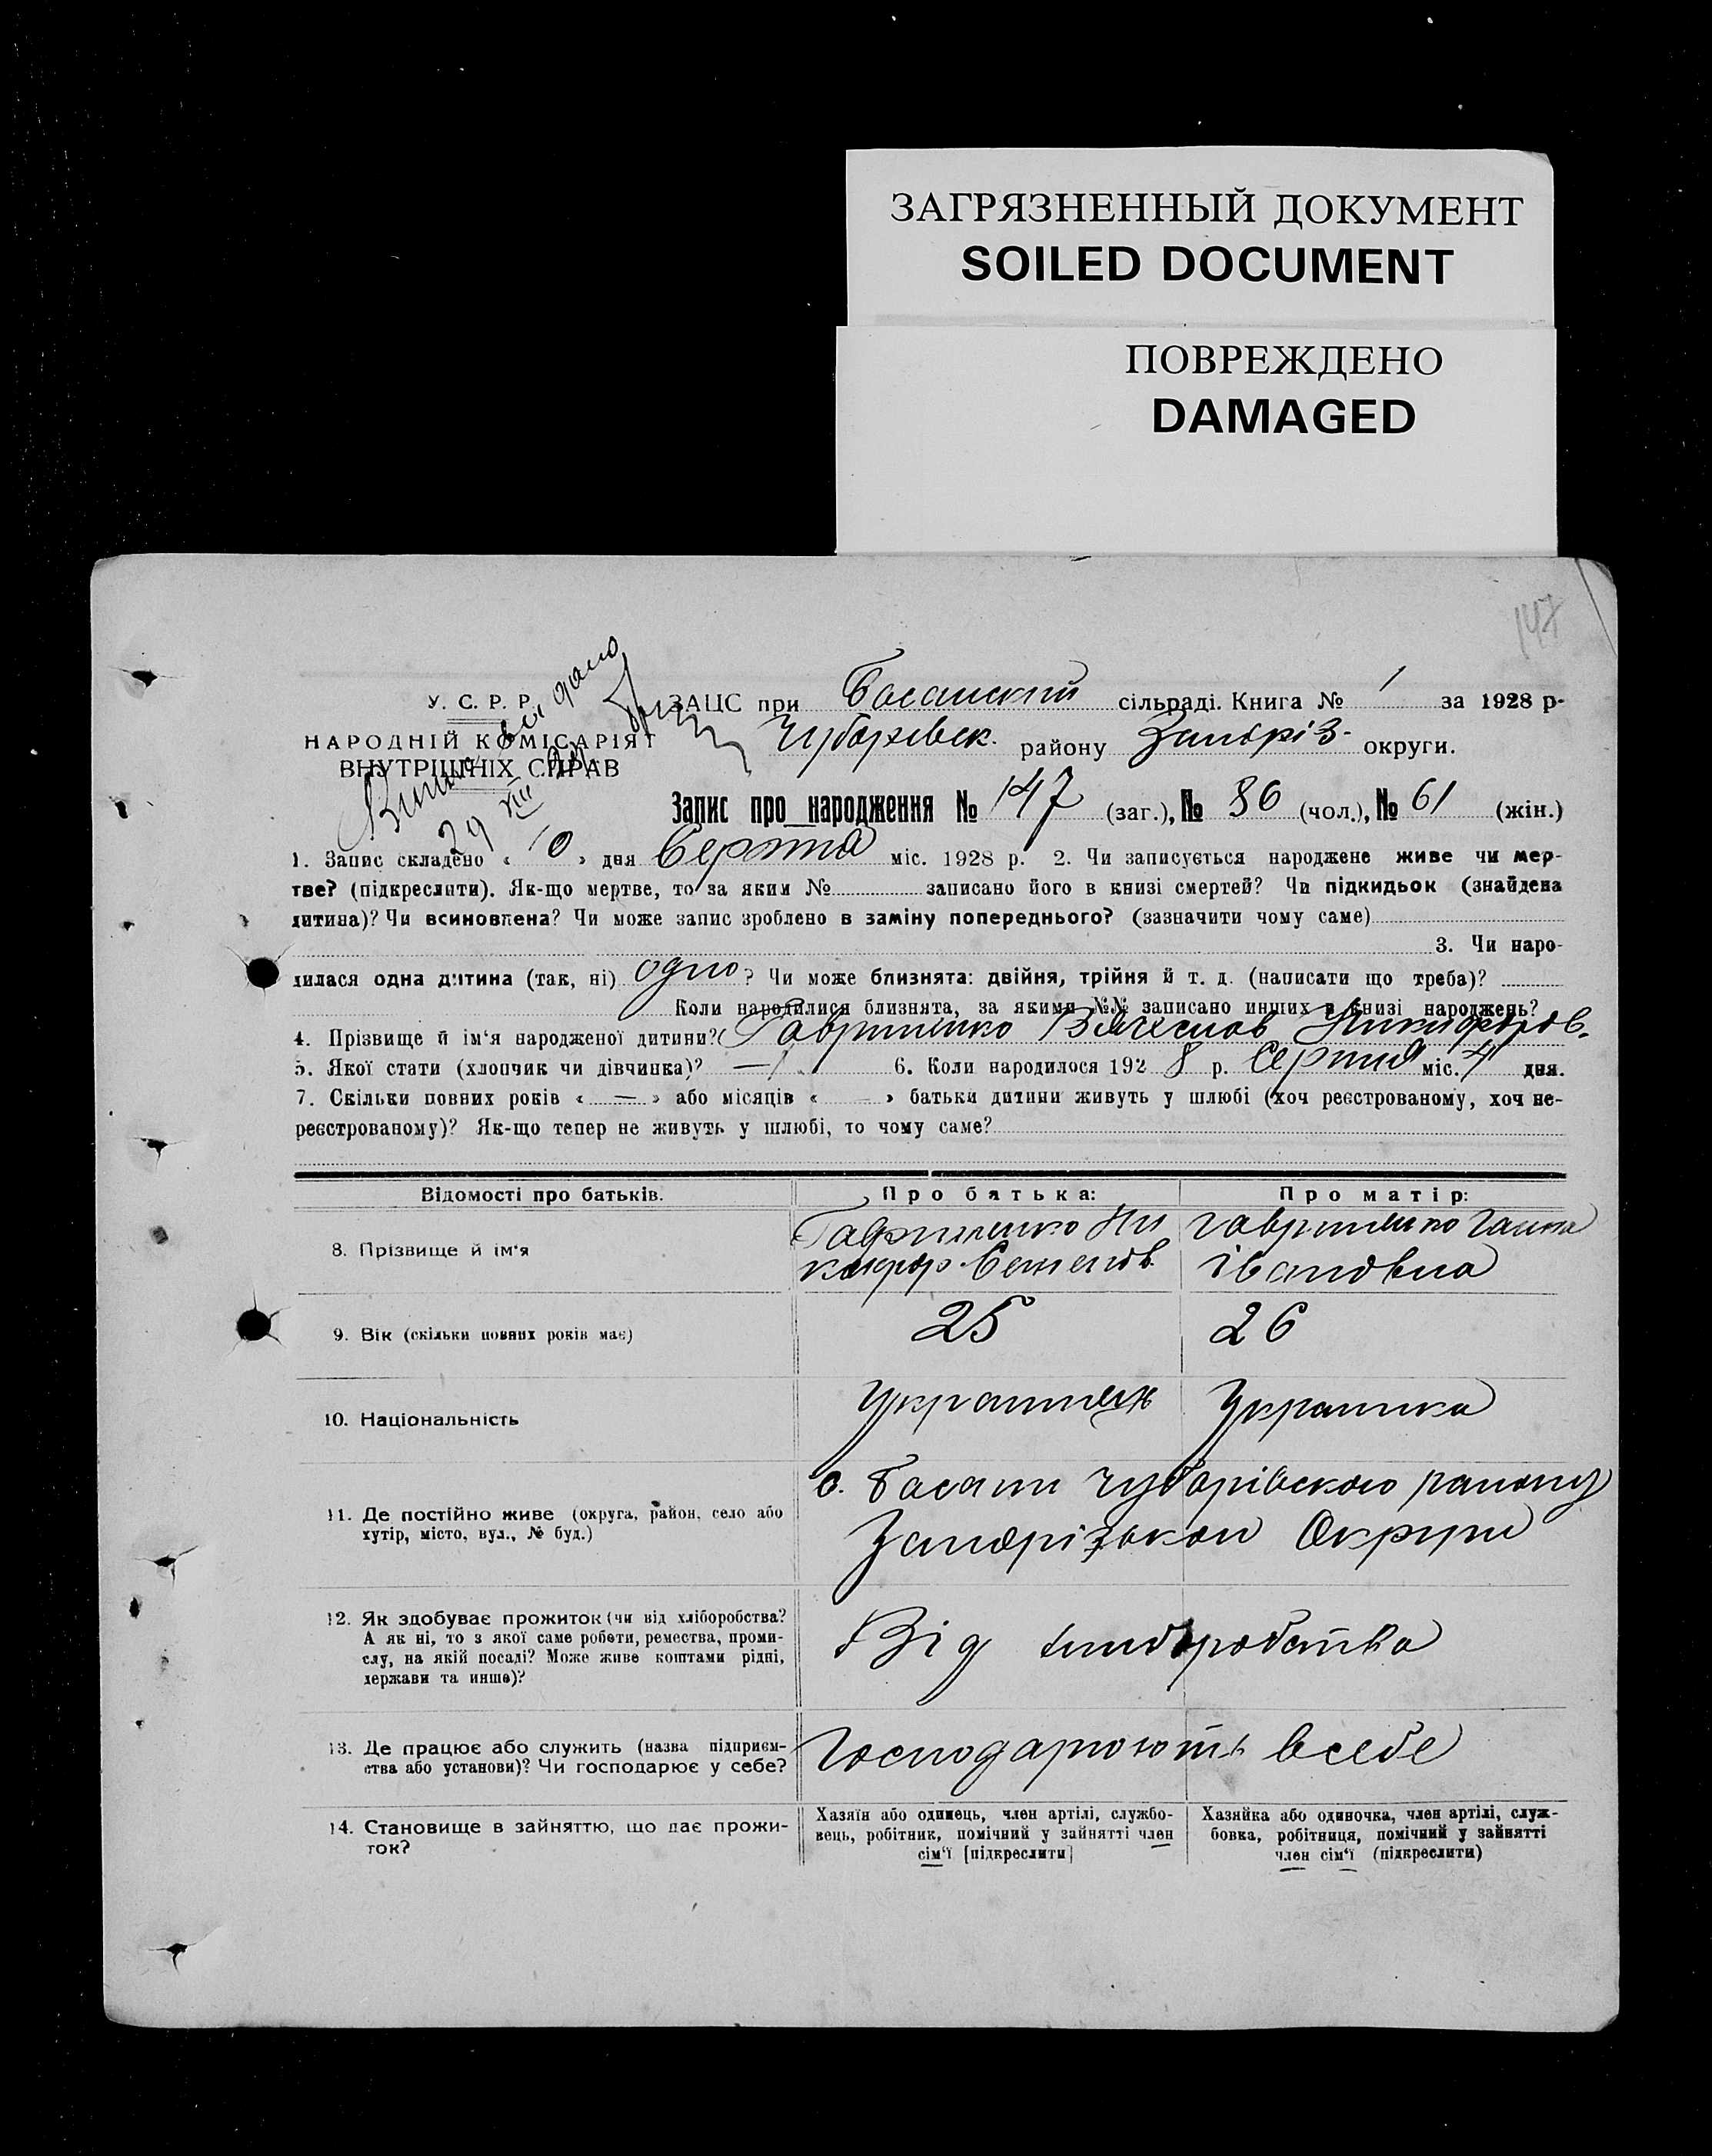 ЗАГРЯЗНЕННЫЙ ДОКУМЕНТ
SOILED DOCUMENT
ПОВРЕЖДЕНО
DAMAGED
147
У. С. Р. Р.
НАРОДНІЙ КОМІСАРІЯТ
ВНУТРІШНІХ СПРАВ
дано
29 VIII 28
ЗАЦС при Басанский сільраді. Книга № 1 за 1928 р.
Чубарівск. району Запоріз. округи.
Запис про народження № 147 (заг.), № 86 (чол.), № 61 (жін.)
1. Запис складено « 10 » дня Серпня міс. 1928 р. 2. Чи записується народжене живе чи мер-
тве? (підкреслити). Як-що мертве, то за яким № записано його в книзі смертей? Чи підкидьок (знайдена
дитина)? Чи всиновлена? Чи може запис зроблено в заміну попереднього? (зазначити чому саме)
3. Чи наро-
дилася одна дитина (так, ні) одно? Чи може близнята: двійня, трійня й т. д. (написати що треба)?
Коли народилися близнята, за якими №№ записано инших в книзі народжень?
4. Прізвище й ім'я народженої дитини? Гавриленко Вячеслав Никифоров.
5. Якої стати (хлопчик чи дівчинка)? — 6. Коли народилося 1928 р. Серпня міс. 4 дня.
7. Скільки повних років « — » або місяців « — » батьки дитини живуть у шлюбі (хоч реєстрованому, хоч не-
реєстрованому)? Як-що тепер не живуть у шлюбі, то чому саме?
Відомості про батьків. Про батька: Про матір:
8. Прізвище й ім'я Гавриленко Ни Гавриленко Ганна
кифор Семенов. Івановна
9. Вік (скільки повних років має) 25 26
10. Національність Украинець Украинка
11. Де постійно живе (округа, район, село або с. Басани Чубарівского району
хутір, місто, вул., № буд.) Запорізькои Округи
12. Як здобуває прожиток (чи від хліборобства? Від хлиборобства
А як ні, то з якої саме роботи, ремества, проми-
слу, на якій посаді? Може живе коштами рідні,
держави та инше)?
13. Де працює або служить (назва підприєм- Господарюють в себе
ства або установи)? Чи господарює у себе?
14. Становище в зайняттю, що дає прожи- Хазяїн або одинець, член артілі, службо- Хазяйка або одиночка, член артілі, служ-
ток? вець, робітник, помічний у зайнятті член бовка, робітниця, помічний у зайнятті
сім'ї [підкреслити] член сім'ї (підкреслити)